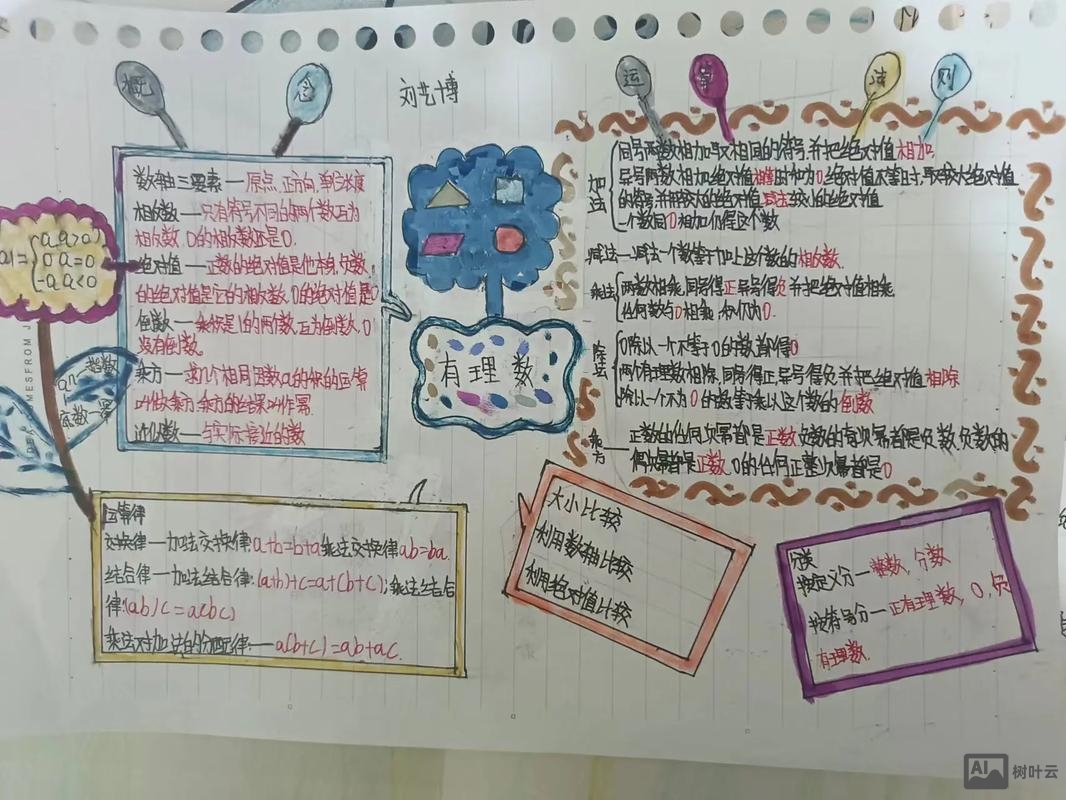 概念
刘艺博
运算法则
数轴三要素—原点,正方向,单位长度
相反数—只有符号不同的两个数互为
相反数,0的相反数还是0.
绝对值—正数的绝对值是他本身,负数
的绝对值是它的相反数,0的绝对值是0
倒数—乘积是1的两个数,互为倒数,0
没有倒数。
乘方—求几个相同因数a的积的运算
叫做乘方,乘方的结果叫作幂
近似数—与实际接近的数
a,a>0
0 a=0
-a a<0
MESFROM
指数
底数—幂
有理数
加法
同号两数相加,取相同的符号,并把绝对值相加.
异号两数相加,绝对值相等时和为0,绝对值不等时,取较大绝对值
的符号,并用较大的绝对值减去较小的绝对值
一个数同0相加仍得这个数
减法—减去一个数等于加上这个数的相反数.
乘法
两数相乘,同号得正,异号得负,并把绝对值相乘
任何数与0相乘,仍为0.
除法
0除以一个不等于0的数都得0
两个有理数相除,同号得正,异号得负,并把绝对值相除
除以一个不为0的数等于乘以这个数的倒数
乘方
正数的任何次幂都是正数,负数的奇次幂都是负数,负数的
偶次幂都是正数,0的任何正整数次幂都是0
运算律
交换律—加法交换律:a+b=b+a,乘法交换律ab=ba.
结合律—加法结合律:(a+b)+c=a+(b+c);乘法结合
律:(ab)c=a(bc)
乘法对加法的分配律:—a(b+c)=ab+ac.
大小比较
利用数轴比较
利用绝对值比较
分类
按定义分—整数,分数
按符号分—正有理数,0,负
有理数.
AI 树叶云